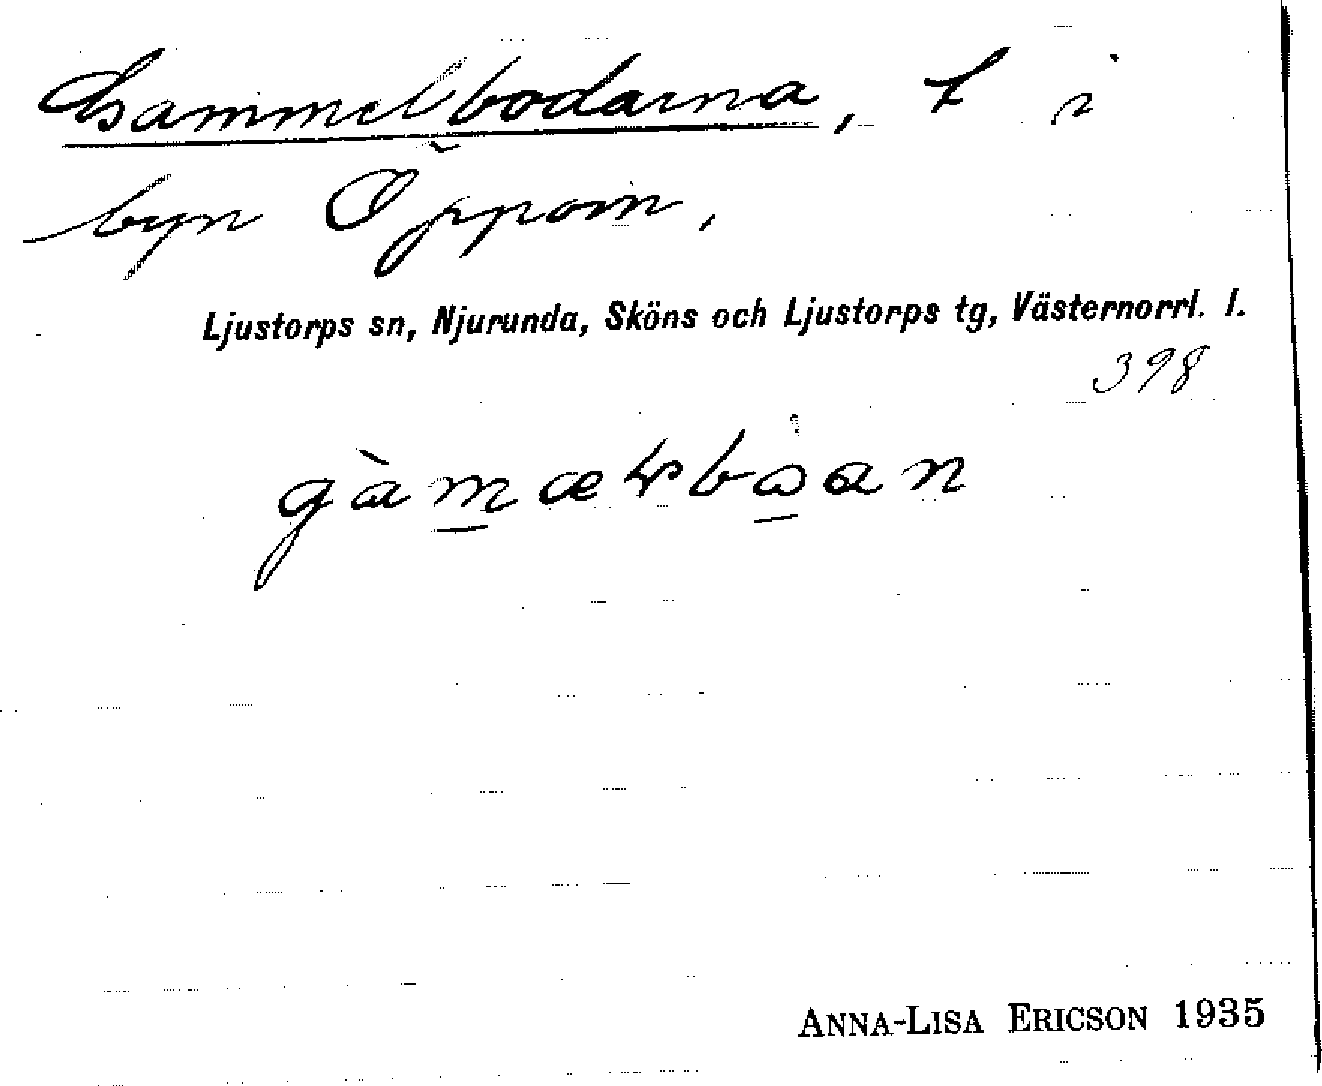 Gammelbodarna, L i
byn Öppom,
Ljustorps sn, Njurunda, Sköns och Ljustorps tg, Västernorrl. l.
398
ANNA-LISA ERICSON 1935